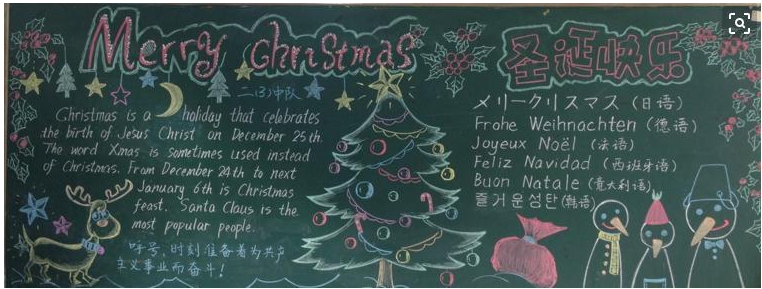 Merry Christmas
二(3)中队
Christmas is a holiday that celebrates
the birth of Jesus Christ on December 25th.
The word Xmas is sometimes used instead
of Christmas. From December 24th to next
January 6th is Christmas
feast. Santa Claus is the
most popular people.
呼号：时刻准备着为共产
主义事业而奋斗！
圣诞快乐
メリークリスマス (日语)
Frohe Weihnachten (德语)
Joyeux Noël (法语)
Feliz Navidad (西班牙语)
Buon Natale (意大利语)
즐거운성탄 (韩语)